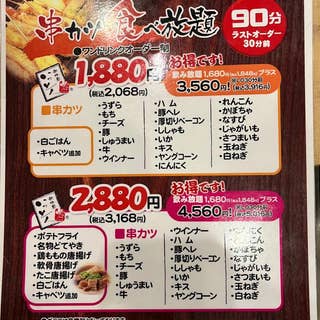 串カツ食べ放題
●ワンドリンクオーダー制
90分
ラストオーダー
30分前
1,880円
(税込2,068円)
お得です!
飲み放題 1,680円(税込1,848円)プラス
3,560円!
(税込3,916円)
■串カツ
・白ごはん
・キャベツ追加
・うずら
・もち
・チーズ
・豚
・しゅうまい
・牛
・ウインナー
・ハム
・豚ヘレ
・厚切りベーコン
・ししゃも
・いか
・キス
・ヤングコーン
・にんにく
・れんこん
・かぼちゃ
・なすび
・じゃがいも
・さつまいも
・玉ねぎ
・白ねぎ
2,880円
(税込3,168円)
お得です!
飲み放題 1,680円(税込1,848円)プラス
4,560円!
■串カツ
・ポテトフライ
・名物どてやき
・鶏ももの唐揚げ
・軟骨唐揚げ
・たこ唐揚げ
・白ごはん
・キャベツ追加
・うずら
・もち
・チーズ
・豚
・しゅうまい
・牛
・ウインナー
・ハム
・豚ヘレ
・厚切りベーコン
・ししゃも
・いか
・キス
・ヤングコーン
・かぼちゃ
・なすび
・じゃがいも
・さつまいも
・玉ねぎ
・白ねぎ